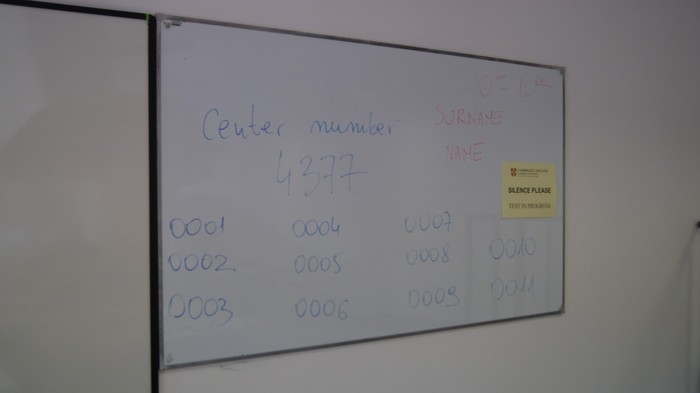 Center number
4377
SURNAME
NAME
SILENCE PLEASE
TEST IN PROGRESS
0001 0004 0007
0002 0005 0008 0010
0003 0006 0009 0011